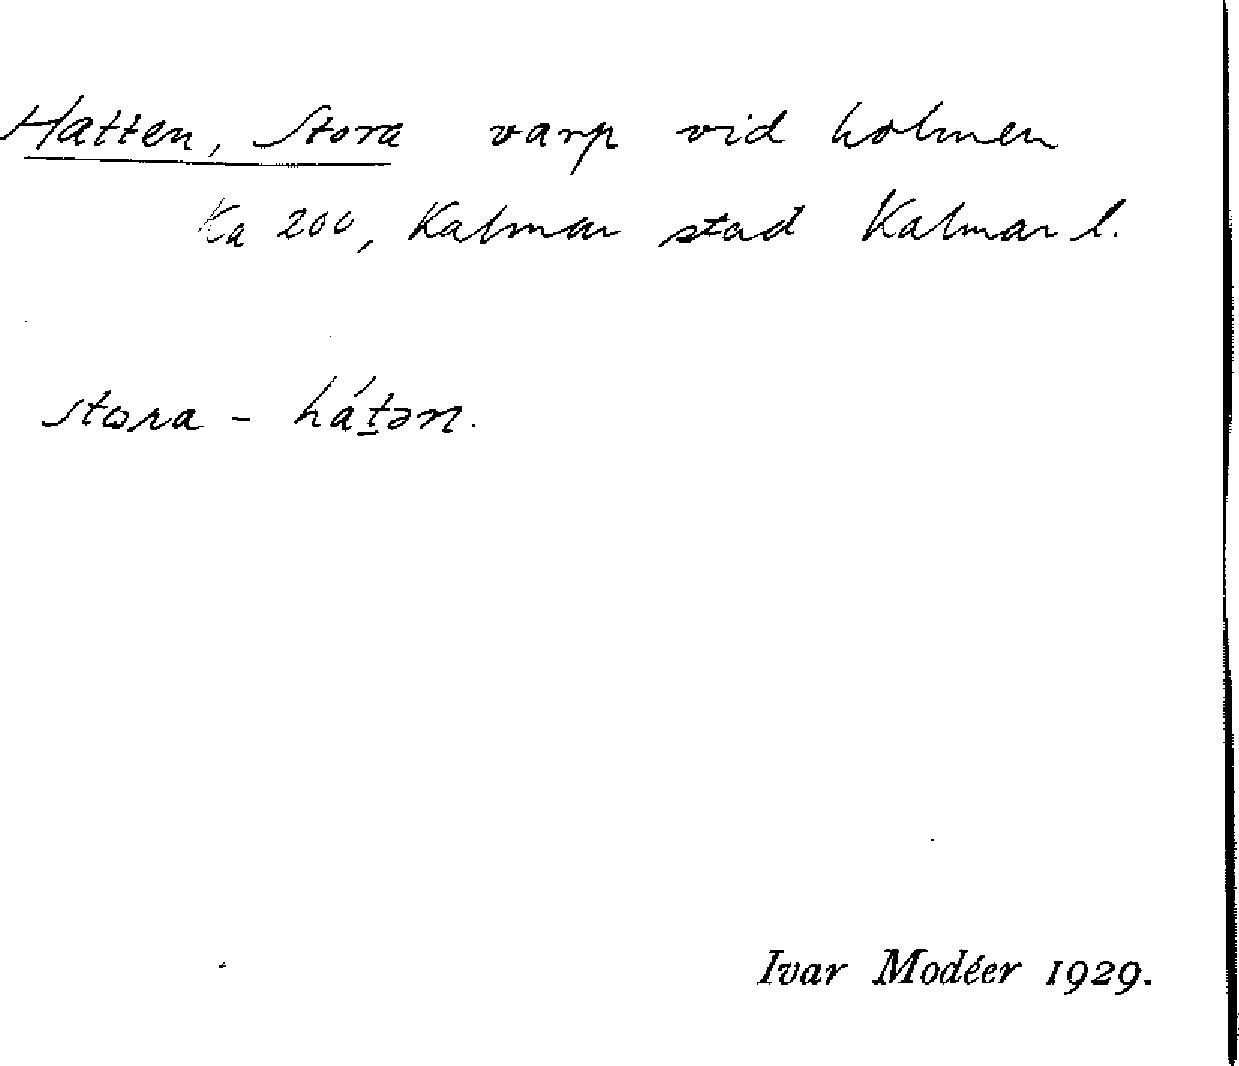 Hatten, Stora varp vid holmen
Ka 200, Kalmar stad Kalmar l.
stora - hát̲ən.
Ivar Modéer 1929.